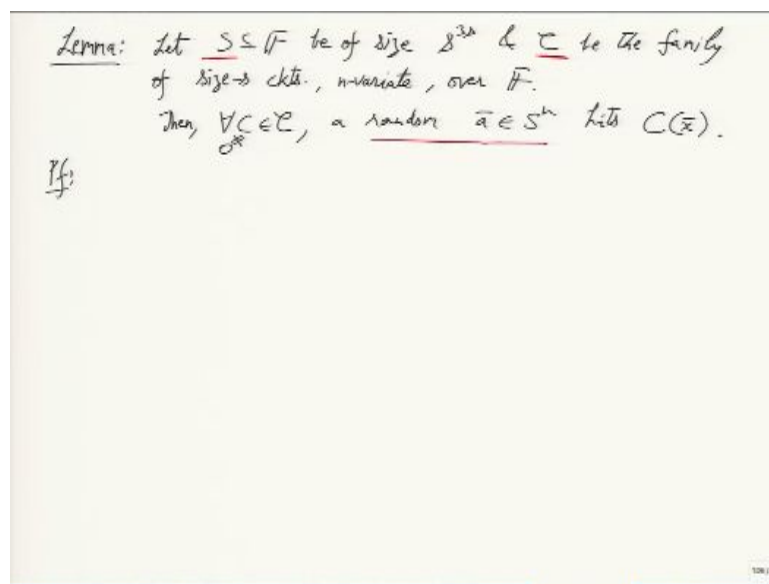 Lemma: Let S ⊆ F be of size 8^{3s} & C be the family
of size-s ckts., n-variate, over F.
Then, ∀C ∈ C, a random ā ∈ Sⁿ hits C(x̄).
0≠
Pf: